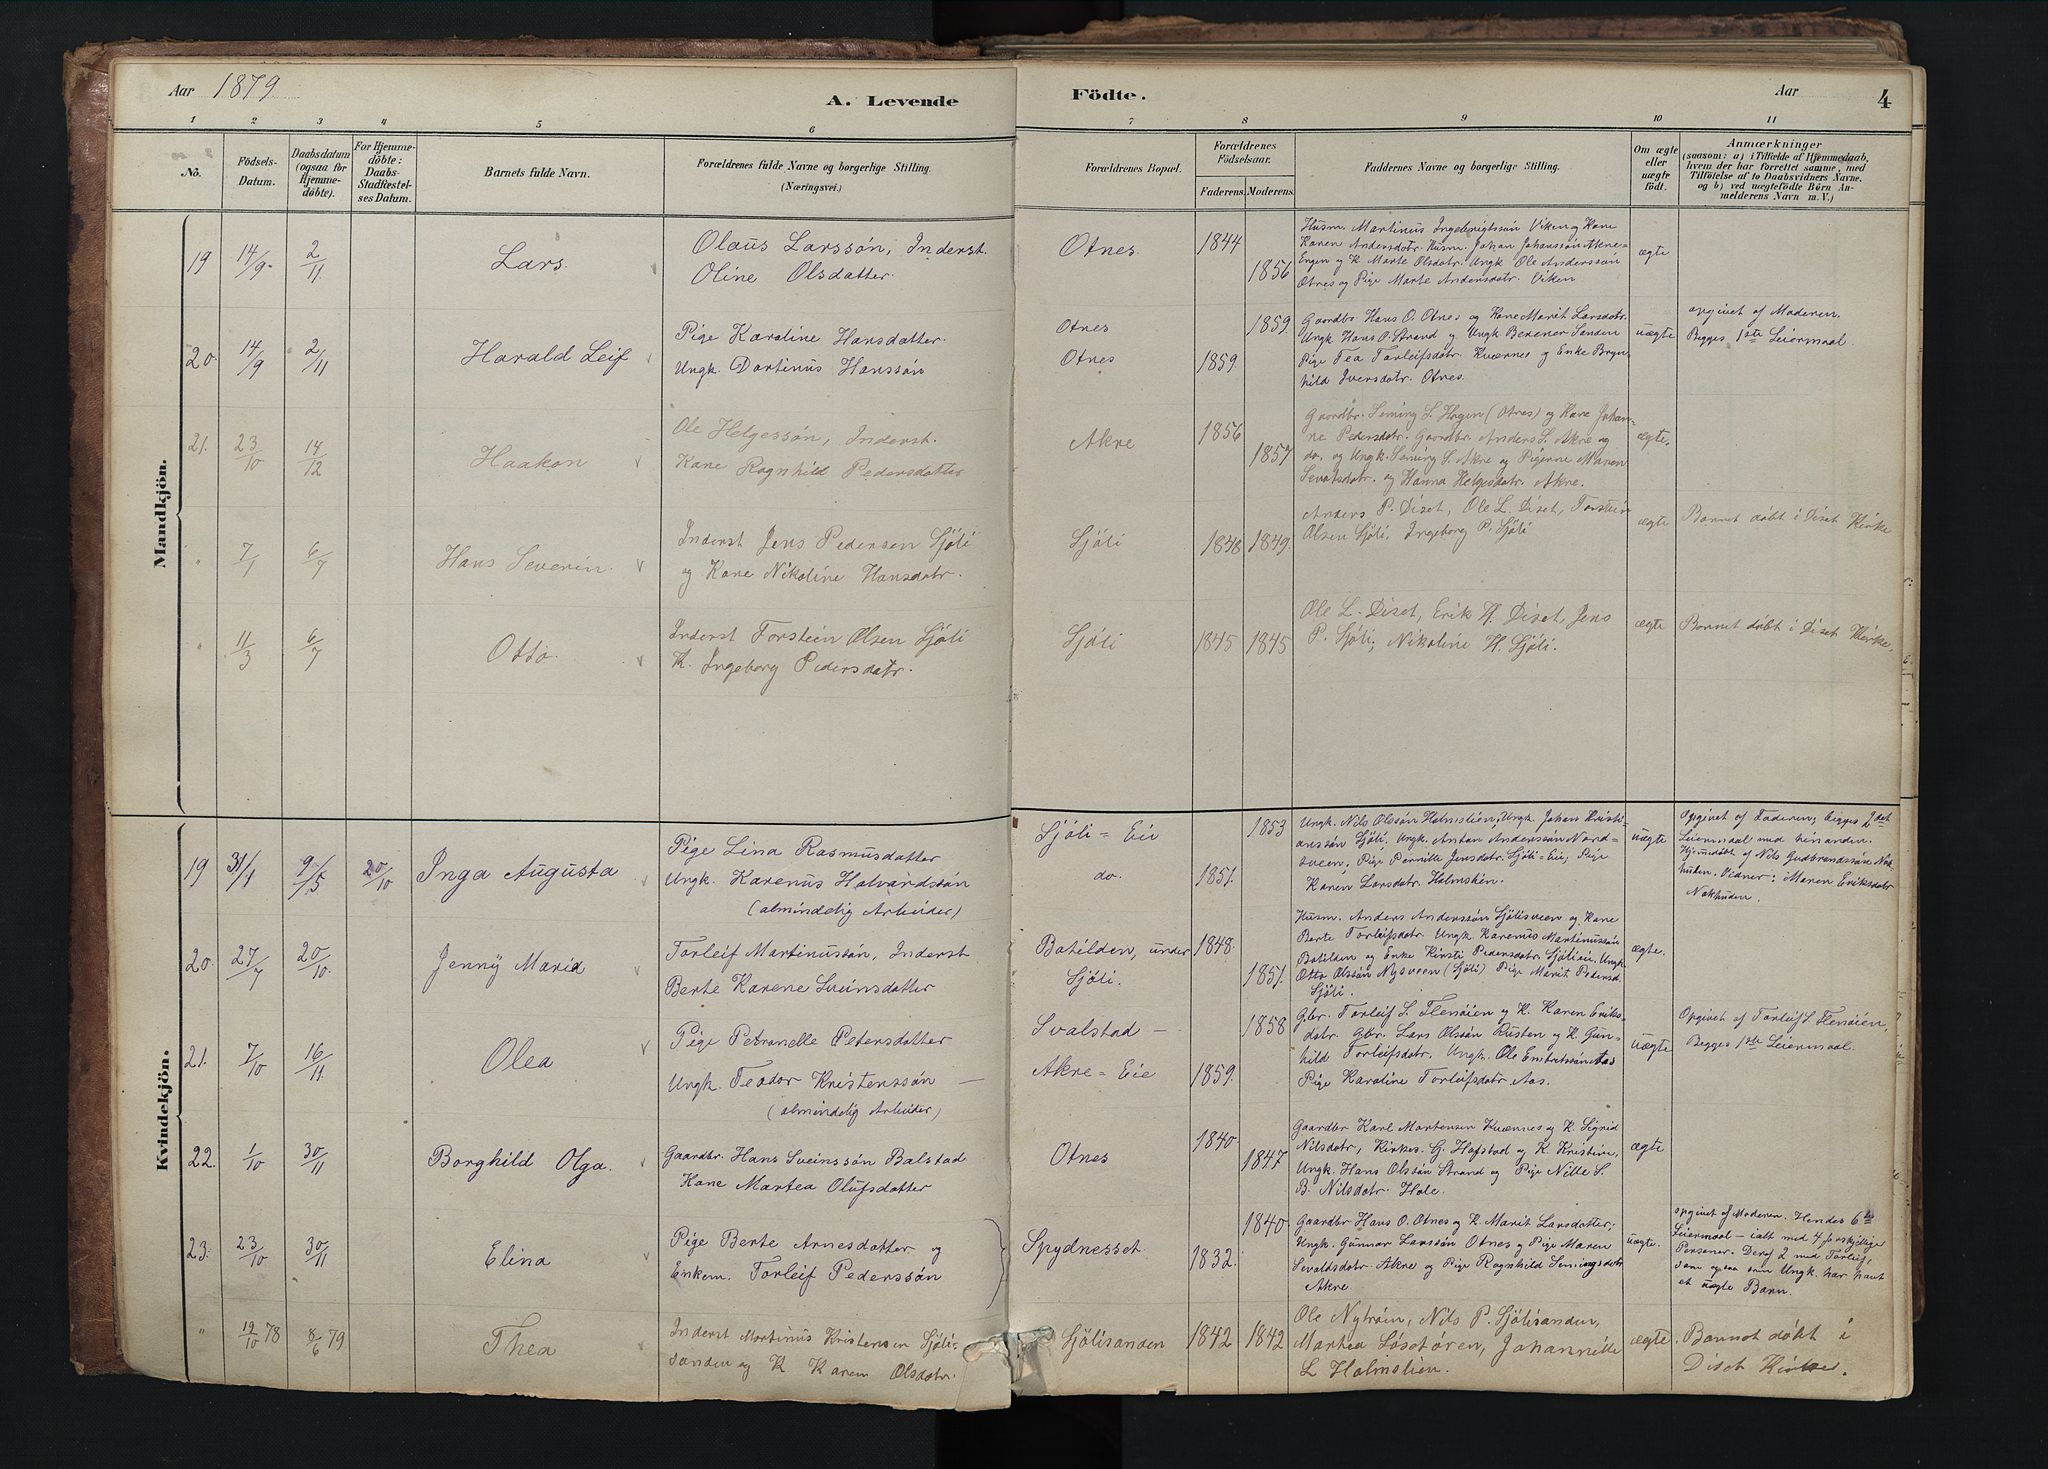 Aar 1879
A. Levende
Födte.
Aar
4
1 2 3 4 5 6 7 8 9 10 11
No.
Födsels-
Datum.
Daabsdatum
(ogsaa for
Hjemme-
döbte).
For Hjemme-
döbte:
Daabs-
Stadfæstel-
ses Datum.
Barnets fulde Navn.
Forældrenes fulde Navne og borgerlige Stilling.
(Næringsvei.)
Forældrenes Bopæl.
Forældrenes
Födselsaar.
Faderens. Moderens.
Faddernes Navne og borgerlige Stilling.
Om ægte
eller
uægte
födt.
Anmærkninger
(saasom: a) i Tilfælde af Hjemmedaab,
hvem der har forrettet samme, med
Tilföielse af to Daabsvidners Navne.
og b) ved uægtefödte Børn An-
melderens Navn m. V.)
Mandkjön.
19 14/9 2/11 Lars.
Olaus Larssön, Inderst.
Oline Olsdatter.
Otnes. 1844
1856
Husm. Martinus Ingebrigtssön Viken og Kone
Karen Andersdatr. Husm. Johan Johanssön Akre-
Engen og K. Marte Olsdatr. Ungk. Ole Anderssön
Otnes og Pige Marte Andersdatr. Viken
ægte
20. 14/9 2/11 Harald Leif
Pige Karoline Hansdatter.
Ungk. Dortinus Hanssön
Otnes 1859
Otnes 1859.
Gaardbr. Hans O. Otnes og Kone Marit Larsdatr.
Ungk. Hans O. Strand og Ungk. Berener Sanden
Pige Tea Torleifsdatr. Kværnes og Enke Bryn-
hild Iversdatr. Otnes.
uægte
opgivet af Moderen.
Begges 1ste Leiermaal.
21. 23/10 14/12 Haakon
Ole Helgessön, Inderst.
Kone Ragnhild Pedersdatter
Akre 1856
1857
Gaardbr. Seming S. Hagen (Otnes) og Kone Johan-
ne Pedersdatr. Gaardbr. Anders S. Akre og
do, og Ungk. Seming S. Akre og Pigerne Maren
Sevatsdatr. og Hanna Helgesdatr. Akre.
ægte.
" 7/1 6/7 Hans Severin.
Inderst Jens Pedersen Sjöli
og Kone Nikoline Hansdatr.
Sjöli 1848 1849.
Anders P. Diset, Ole L. Diset, Torstein
Olsen Sjöli, Ingeborg P. Sjöli
ægte
Barnet döbt i Diset Kirke
" 11/3 6/7 Otto.
Inderst Torstein Olsen Sjöli
K. Ingeborg Pedersdatr.
Sjöli 1845 1845
Ole L. Diset, Erik H. Diset, Jens
P. Sjöli, Nikoline H. Sjöli.
ægte
Barnet döbt i Diset Kirke.
Kvindekjön.
19 31/1 9/5 20/10 Inga Augusta
Pige Lina Rasmusdatter
Ungk. Karenus Halvardssön
(almindelig Arbeider)
Sjöli-Eie 1853
do. 1851.
Ungk. Nils Olssön Holmslien, Ungk. Johan Kristi-
anssön Sjöli, Ungk. Anton Anderssön Nord-
sveen, Pige Pernille Jensdatr. Sjöli-Eie, Pige
Karen Larsdatr. Holmslien.
uægte
Opgivet af Faderen, begges 2det
Leiermaal med hinanden.
Hjemmedöbt af Nils Gudbrandssön Nok-
huden. Vidner: Maren Eriksdatr
Nokhuden.
20. 27/7 20/10. Jenny Maria
Torleif Martinussön, Inderst
Berte Karene Sveinsdatter
Botilden, under 1848.
Sjöli. 1851.
Husm. Anders Anderssön Sjölisveen og Kone
Berte Torleifsdatr. Ungk. Karenus Martinussön
Botilden og Enke Kirsti Pedersdatr. Sjölieie. Ungk.
Otto Olssön Nysveen (Sjöli) Pige Marit Pedersd.
Sjöli.
ægte.
21. 7/10 16/11 Olea
Pige Petronelle Petersdatter
Ungk. Teodor Kristenssön
(almindelig Arbeider)
Svalstad 1858
Akre-Eie 1859.
Gbr. Torleif S. Flenöien og K. Karen Eriks-
datr. Gbr. Lars Olssön Rusten og K. Gun-
hild Torleifsdatr. Ungk. Ole Embretssön Aas
Pige Karoline Torleifsdatr Aas.
uægte
Opgivet af Torleif S. Flenöien,
Begges 1ste Leiermaal.
22. 1/10 30/11 Borghild Olga.
Gaardbr. Hans Sveinssön Balstad
Kone Martea Olufsdatter
Otnes 1840
1847
Gaardbr Karl Mortensen Kværnes og K. Sigrid
Nilsdatr, Kirkes. G. Hafstad og K. Kristine,
Ungk. Hans Olssön Strand og Pige Nille S.
B. Nilsdatr. Hole.
ægte
23. 23/10 30/11 Elina
Pige Berte Arnesdatter og
Enkem. Torleif Pederssön
Spydnesset 1840
1832.
Gaardbr Hans O. Otnes og K. Marit Larsdatter,
Ungk. Gunnar Larssön Otnes og Pige Maren
Sevaldsdatr. Akre og Pige Ragnhild Semingsdatr
Akre.
uægte.
opgivet af Moderen. Hendes 6te
Leiermaal – ialt med 4 forskjellige
Personer. Deraf 2 med Torleif,
som ogsaa som Ungk. har havt
et uægte Barn.
" 19/10 78 8/6 79 Thea
Inderst Martinus Kristensen Sjöli-
sanden og K. Karen Olsdatr.
Sjölisanden 1842 1842
Ole Nytröen, Nils P. Sjölisanden,
Martea Lösetören, Johannille
L Holmslien.
ægte.
Barnet döbt i
Diset Kirke.